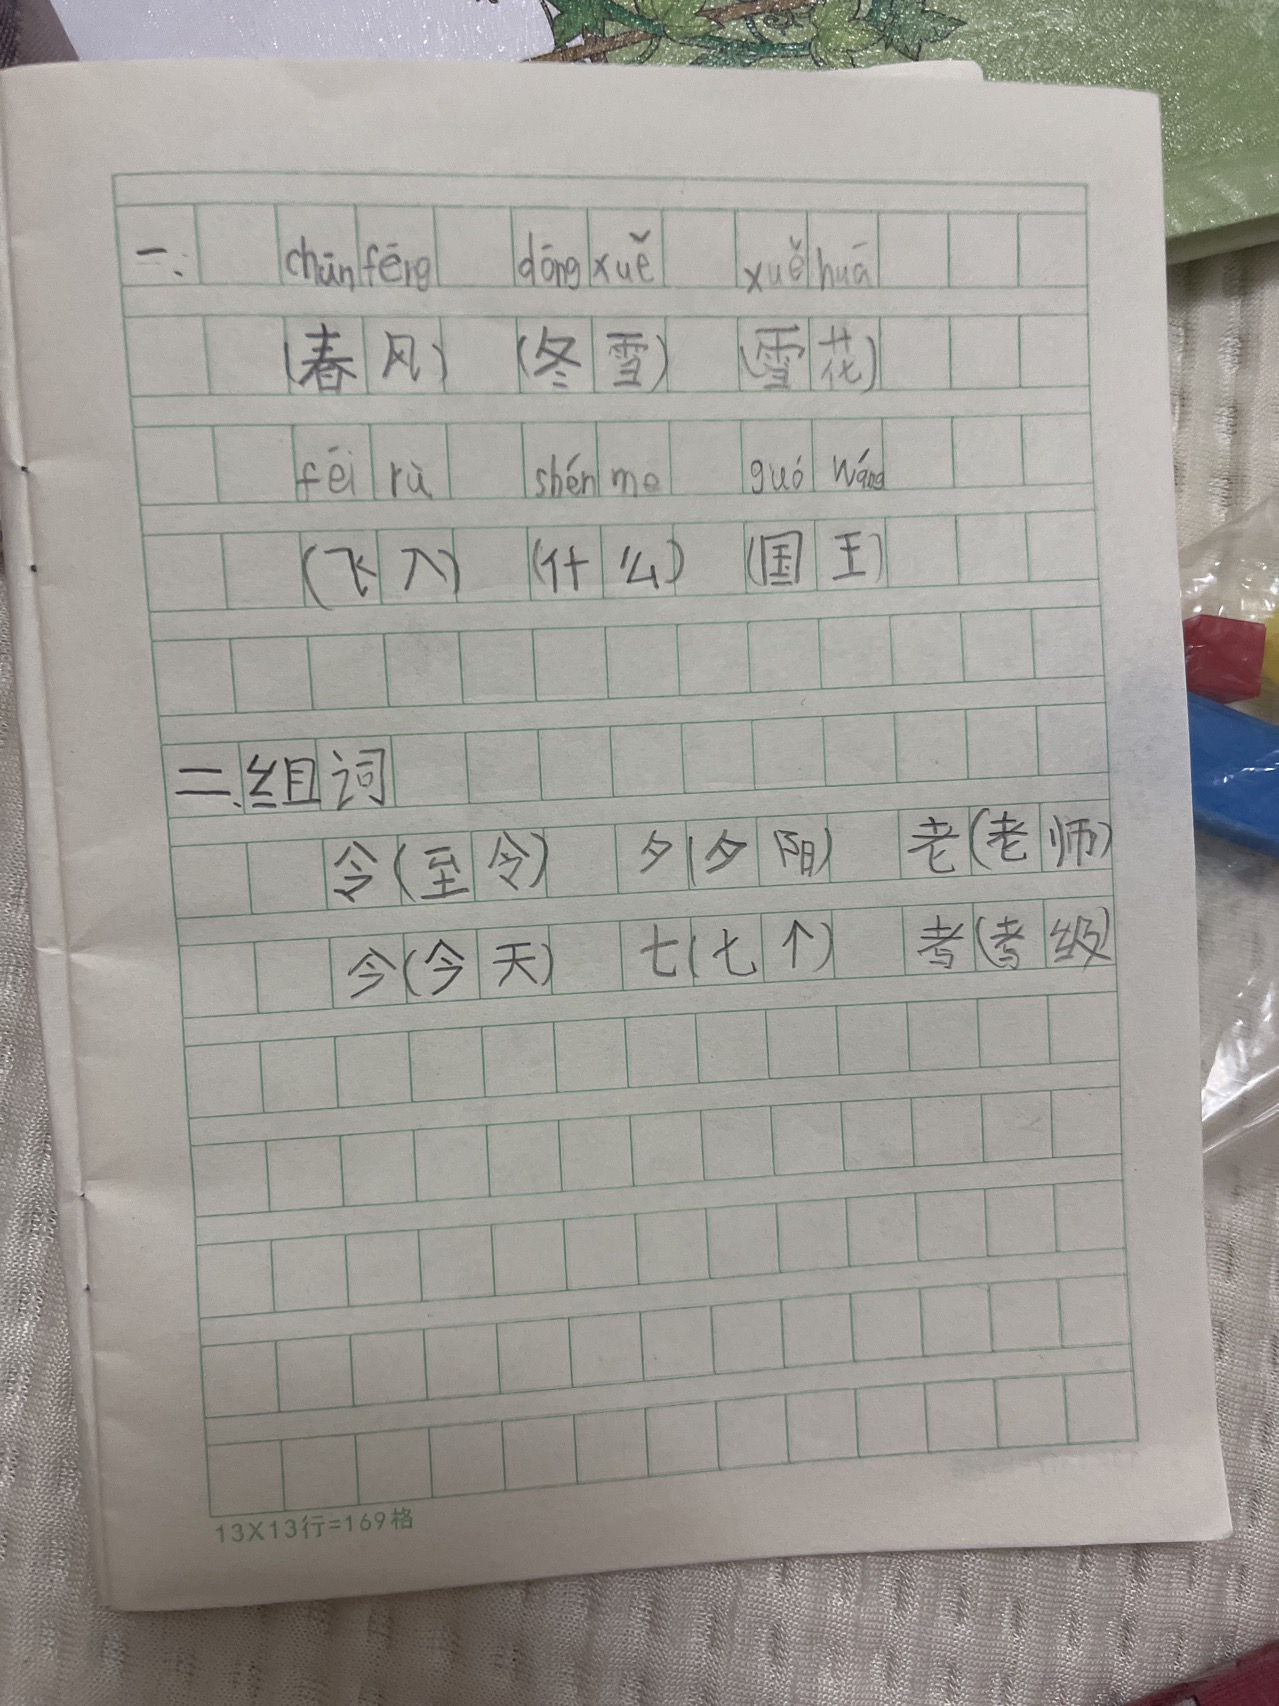 一、 chūn fēng dōng xuě xuě huā
(春风) (冬雪) (雪花)
fēi rù shén me guó wáng
(飞入) (什么) (国王)
二、组词
令(至令) 夕(夕阳) 老(老师)
今(今天) 七(七个) 考(考级)
13X13行=169格